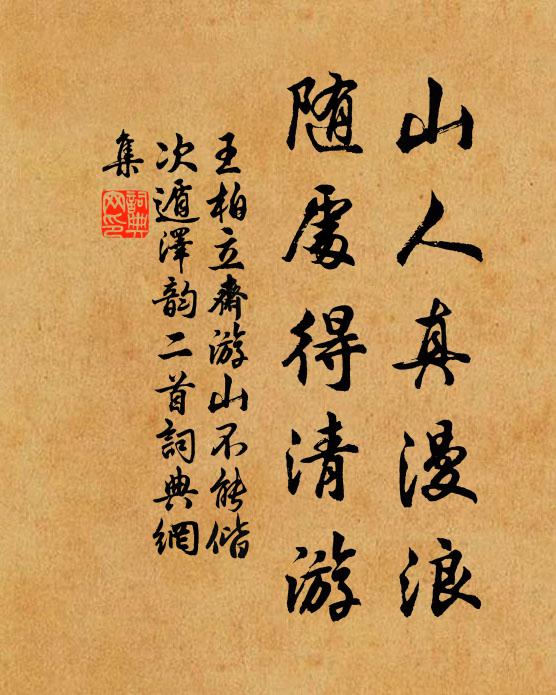 山人真漫浪
随處得清游
王柏立齋游山不能偕
次遁澤韵二首詞典網
集
詞典
网印